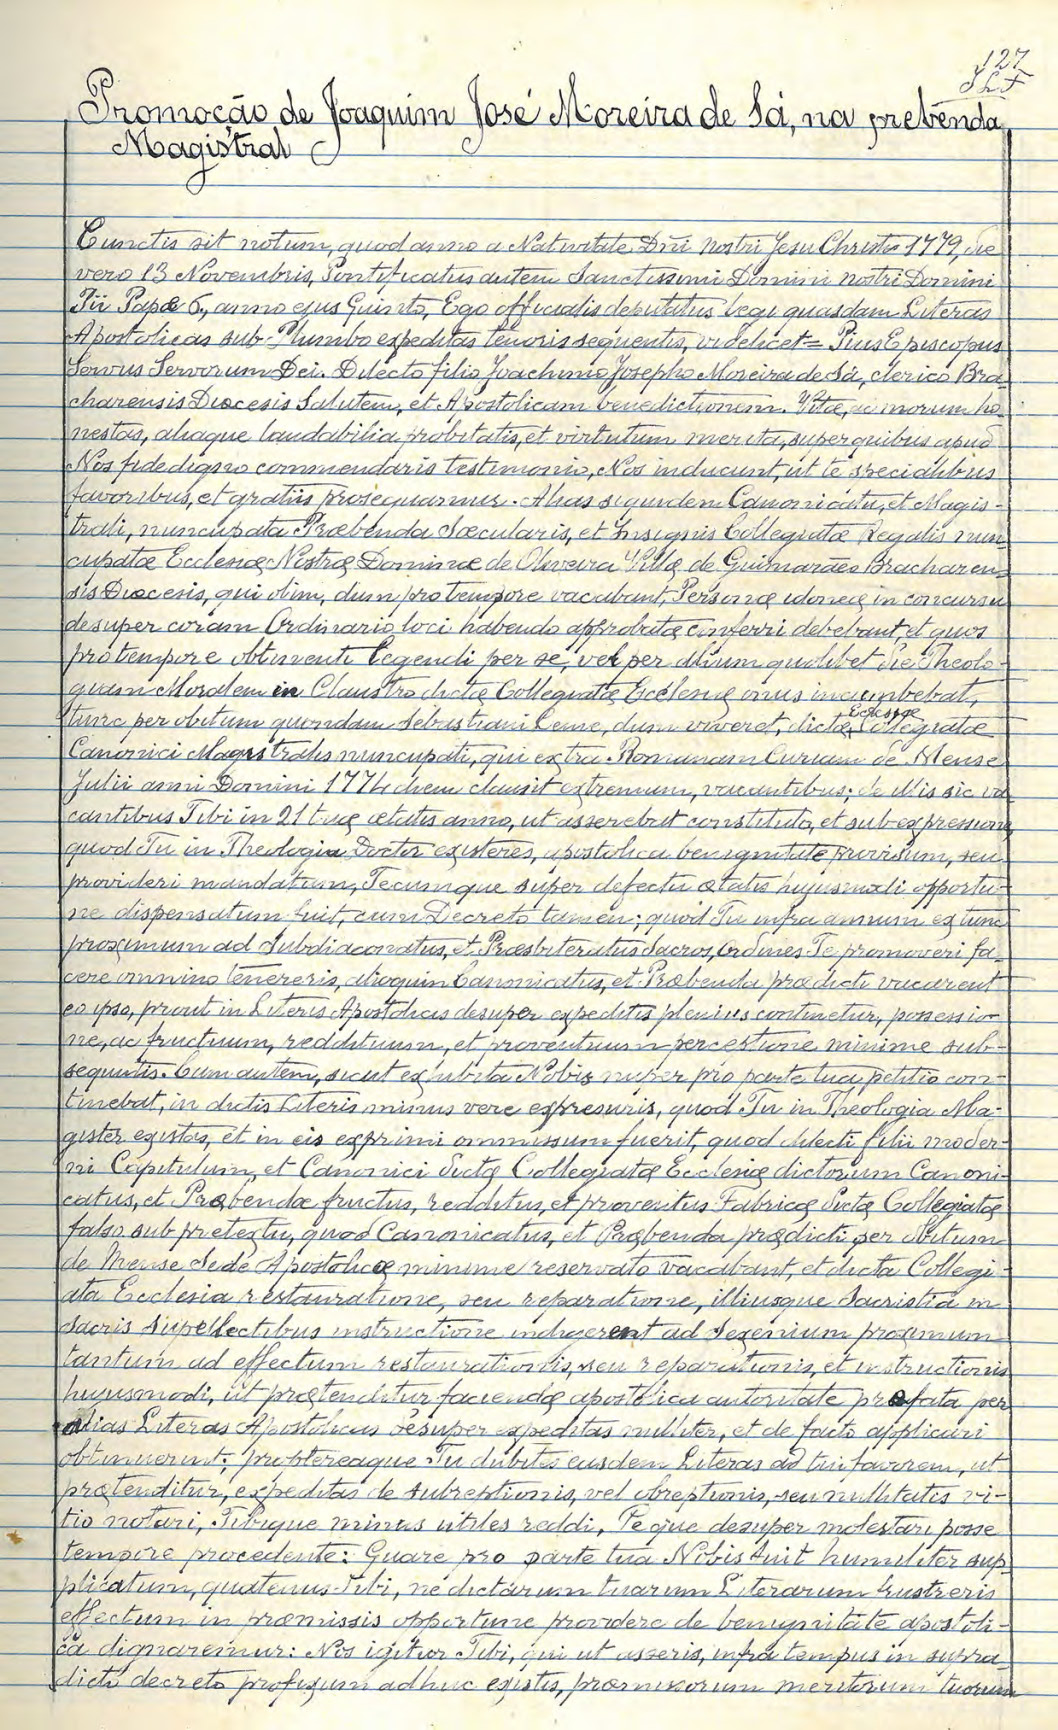 127
Promoção de Joaquim José Moreira de Sá, na prebenda
Magistral
Cunctis sit notum, quod anno a Nativitate Dñi nostri Jesu Christi 1779, die
vero 13 Novembris, Pontificatus autem Sanctissimi Domini nostri Domini
Pii Papæ 6., anno ejus Quinto, Ego officialis deputatus legi quasdam Literas
Apostolicas sub Plumbo expeditas tenoris sequentis, videlicet = Pius Episcopus
Servus Servorum Dei. Dilecto filio Joachimo Josepho Moreira de Sá, clerico Bra-
charensis Diocesis Salutem, et Apostolicam benedictionem. Vitæ, ac morum ho-
nestas, aliaque laudabilia probitatis, et virtutum merita, super quibus apud
Nos fidedigno commendaris testimonio, Nos inducunt, ut te specialibus
favoribus, et gratiis prosequamur. Alias siquidem Canonicatu, et Magis-
trali, nuncupata Præbenda Sæcularis, et Insignis Collegiatæ Regalis nun-
cupatæ Ecclesiæ Nostræ Dominæ de Oliveira Villæ de Guimarães Bracharen-
sis Diocesis, qui olim, dum pro tempore vacabant, Personæ idoneæ in concursu
desuper coram Ordinario loci habendo approbatæ conferri debebant, et quos
pro tempore obtinenti legendi per se, vel per alium quolibet die Theolo-
giam Moralem in Claustro dictæ Collegiatæ Ecclesiæ onus incumbebat,
tunc per obitum quondam Sebastiani Leme, dum viveret, dictæ Ecclesiæ Collegiatæ
Canonici Magistralis nuncupati, qui extra Romanam Curiam de Mense
Julii anni Domini 1774 diem clausit extremum, vacantibus; de illis sic va-
cantibus Tibi in 21 tuæ ætatis anno, ut asserebat constituto, et sub expressione
quod Tu in Theologia Doctor existeres, apostolica benignitate provisum, seu
provideri mandatum, Tecumque super defectu ætatis hujusmodi opportu-
ne dispensatum fuit, cum Decreto tamen; quod Tu infra annum ex tunc
proximum ad Subdiaconatus, et Præsbiteratus Sacros Ordines Te promoveri fa-
cere omnino tenereris, alioquin Canonicatus, et Præbenda prædicti vacarent
eo ipso, prout in Literis Apostolicis desuper expeditis plenius continetur, possessio-
ne, ac fructuum, reddituum, et proventuum perceptione minime sub-
sequutis. Cum autem, sicut exhibita Nobis nuper pro parte tua petitio con-
tinebat, in dictis Literis minus vere expresuris, quod Tu in Theologia Ma-
gister existas, et in eis exprimi ommissum fuerit, quod dilecti filii moder-
ni Capitulum, et Canonici dictæ Collegiatæ Ecclesiæ dictorum Canoni-
catus, et Præbendæ fructus, redditus, et proventus Fabricæ dictæ Collegiatæ
falso sub pretextu, quod Canonicatus, et Præbenda prædicti per obitum
de Mense Sede Apostolicæ minime reservato vacabant, et dicta Collegi-
ata Ecclesia restauratione, seu reparatione, illiusque Sacristia in
Sacris Supellectibus instructione indigerent ad Sexenium proximum
tantum ad effectum restaurationis, seu reparationis, et instructionis
hujusmodi, ut prætenditur faciendæ apostolica autoritate præfata per
alias Literas Apostolicas desuper expeditas nulliter, et de facto applicari
obtinuerint; propterea que Tu dubites easdem Literas ad tui favorem, ut
prætenditur, expeditas de subreptionis, vel obreptionis, seu nullitatis vi-
tio notari, Tibique minus utiles reddi, Teque desuper molestari posse
tempore procedente: Quare pro parte tua Nobis fuit humiliter sup-
plicatum, quatenus Tibi, ne dictarum tuarum Literarum frustreris
effectum in præmissis opportune providere de benignitate apostoli-
ca dignaremur: Nos igitur Tibi, qui ut asseris, infra tempus in supra-
dicto decreto prefixum adhuc existis, præmissorum meritorum tuorum